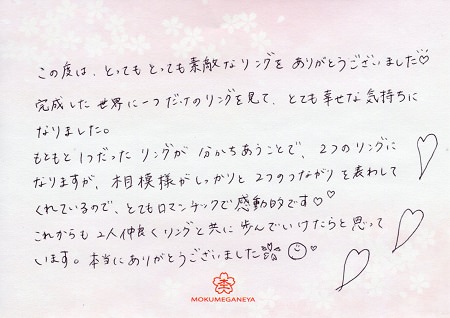 この度は、とってもとっても素敵なリングをありがとうございました♡
完成した世界に一つだけのリングを見て、とても幸せな気持ちに
なりました。
もともと1つだったリングが分かちあうことで、2つのリングに
なりますが、木目模様がしっかりと2つのつながりを表わして
くれているので、とてもロマンチックで感動的です♡♡
これからも2人仲良くリングと共に歩んでいけたらと思って
います。本当にありがとうございました
MOKUMEGANEYA